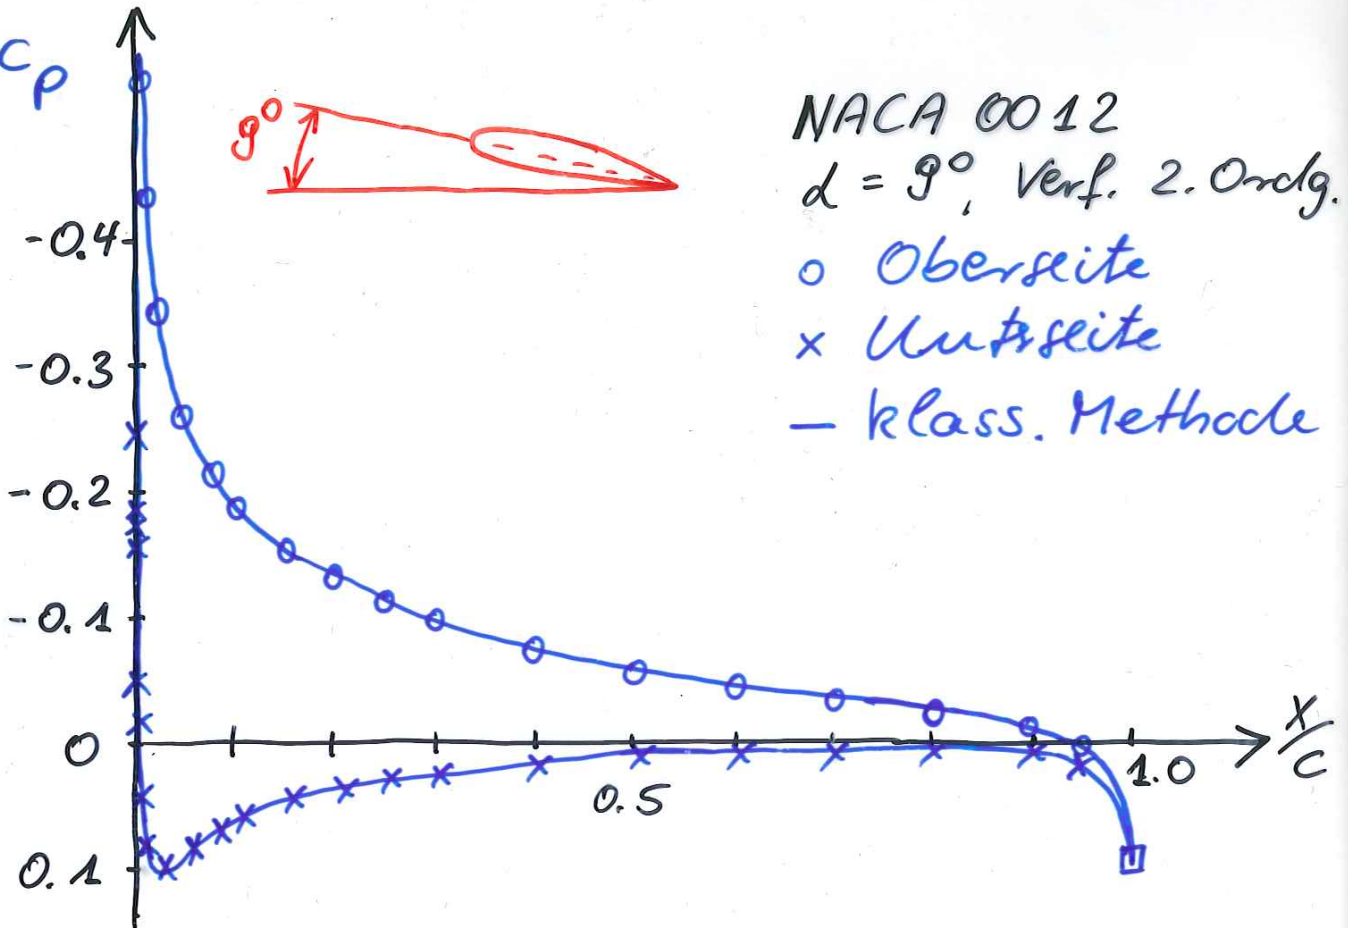 Cp
9°
NACA 0012
α = 9°, Verf. 2. Ordg.
o Oberseite
x Unterseite
— klass. Methode
-0.4
-0.3
-0.2
-0.1
0
0.1
0.5
1.0
x/c